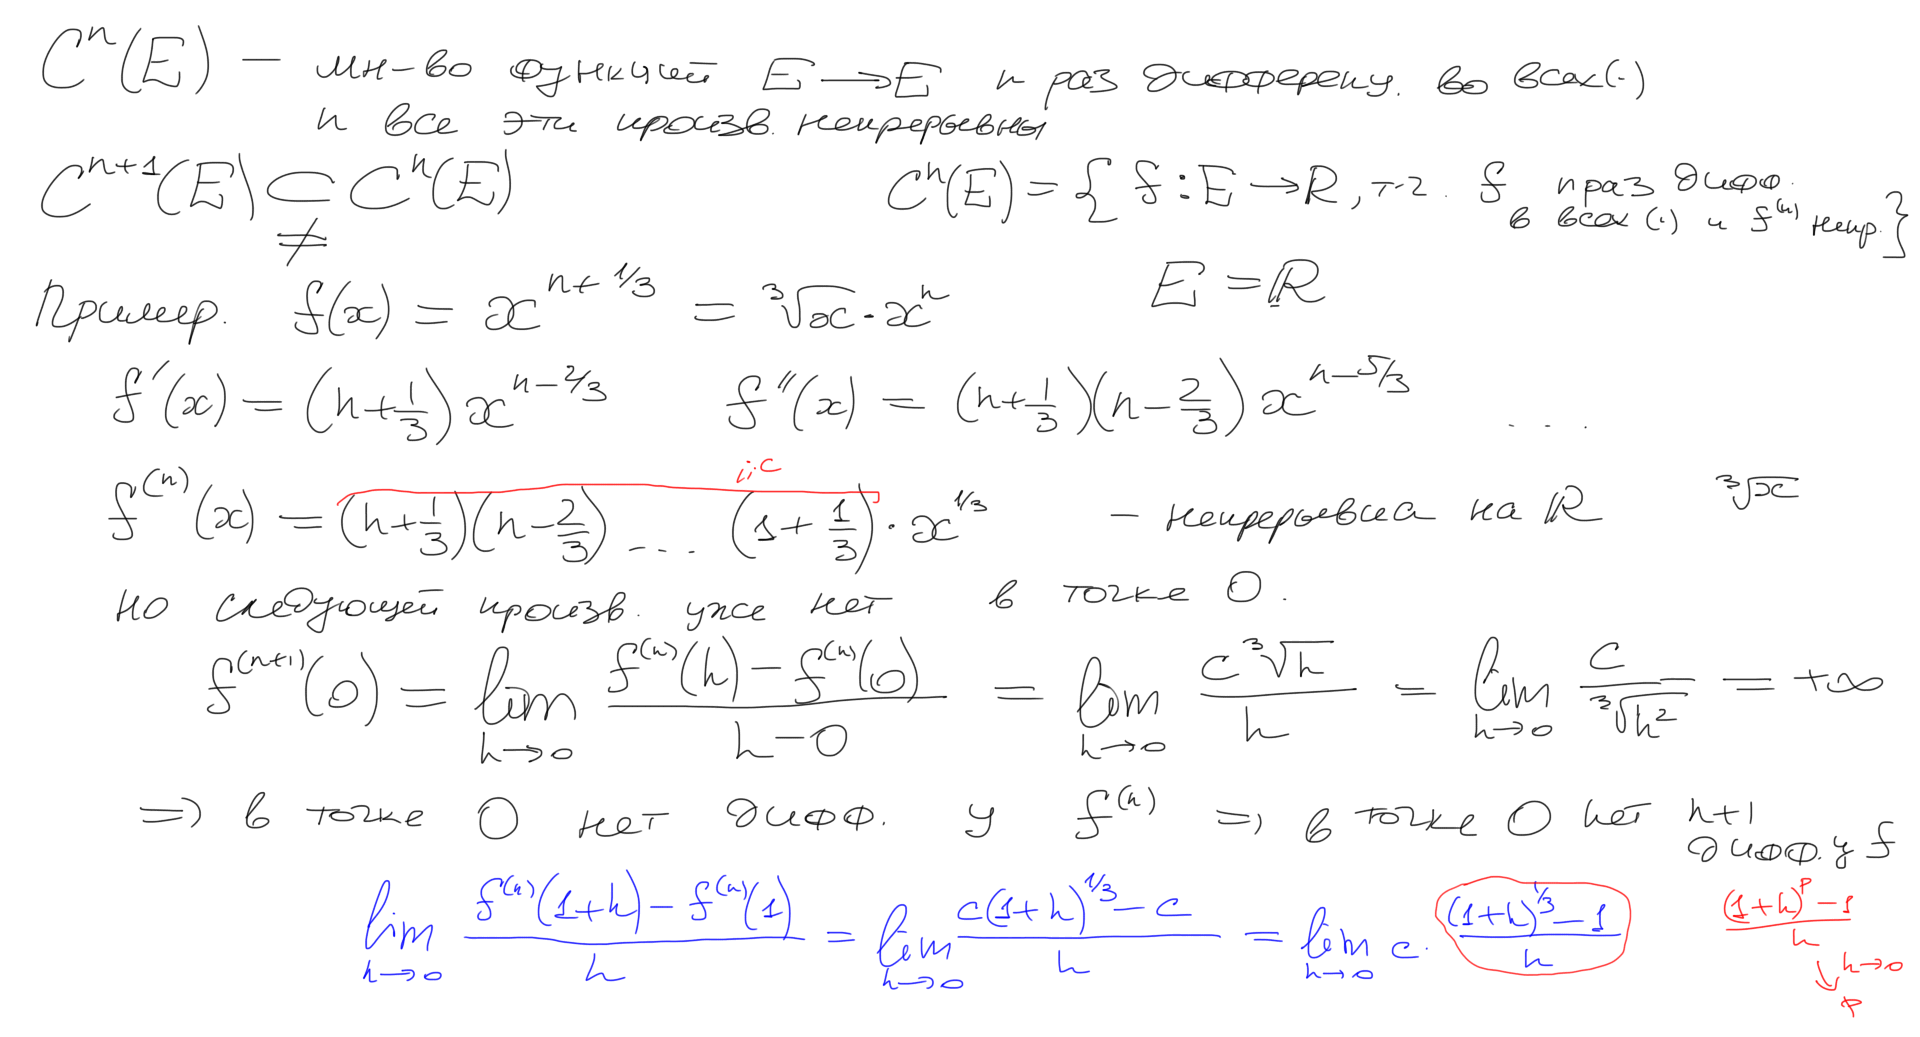 Cⁿ(E) — мн-во функций E → E n раз дифференц. во всех (·)
и все эти произв. непрерывны
Cⁿ⁺¹(E) ⊂ Cⁿ(E)
≠
Cⁿ(E) = { f : E → R, т-г. f n раз дифф.
в всех (·) и f⁽ⁿ⁾ непр. }
E = ℝ
Пример. f(x) = x^{n+1/3} = ∛x · xⁿ
f'(x) = (n+1/3) x^{n-2/3} f''(x) = (n+1/3)(n-2/3) x^{n-5/3} ....
:: c
f⁽ⁿ⁾(x) = (n+1/3)(n-2/3) .... (1+1/3) · x^{1/3} – непрерывна на ℝ ∛x
но следующей произв. уже нет в точке 0.
f⁽ⁿ⁺¹⁾(0) = lim_{h→0} (f⁽ⁿ⁾(h) − f⁽ⁿ⁾(0))/(h−0) = lim_{h→0} (c ∛h)/h = lim_{h→0} c/∛h² = +∞
=> в точке 0 нет дифф. у f⁽ⁿ⁾ => в точке 0 нет n+1
дифф. у f
lim_{h→0} (f⁽ⁿ⁾(1+h) − f⁽ⁿ⁾(1))/h = lim_{h→0} (c(1+h)^{1/3} − c)/h = lim_{h→0} c · ((1+h)^{1/3} − 1)/h
((1+h)^p − 1)/h
h→0
p